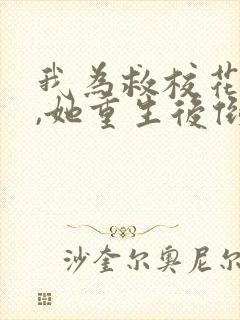 我为救校花
,她重生後
沙奎尔奥尼尔